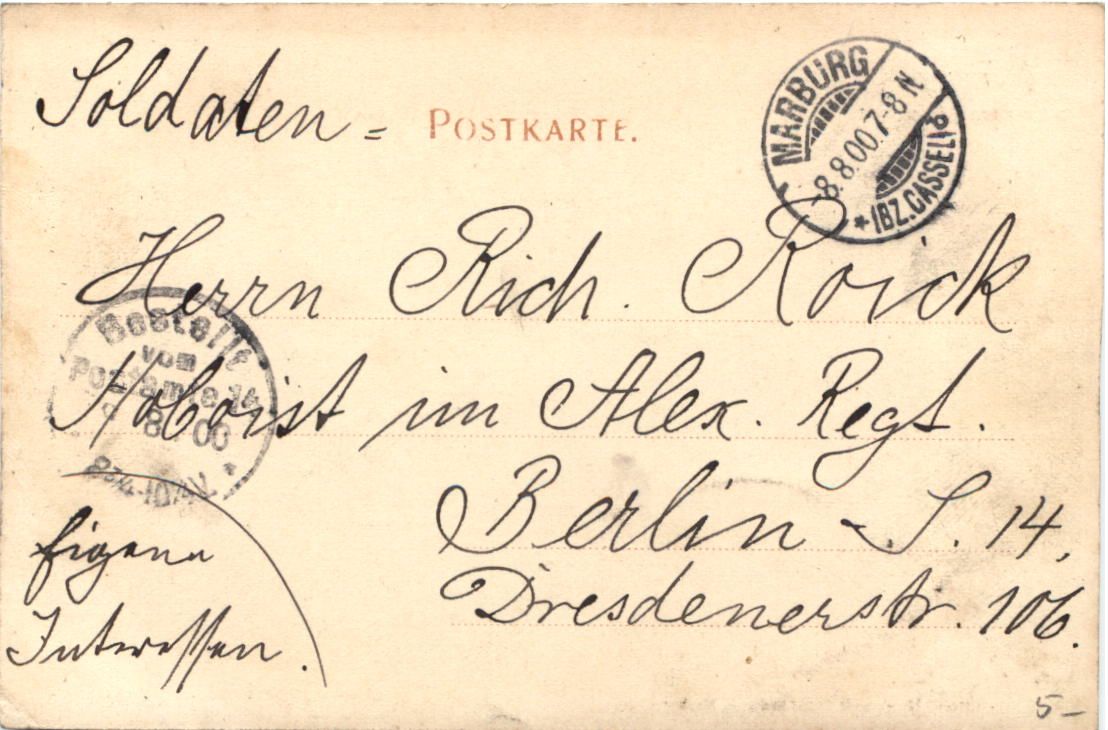 Soldaten = POSTKARTE.
MARBURG
8.8.00.7-8N
* (BZ.CASSEL) a
Herrn Rich. Roick
Hoboist im Alex. Regt.
Berlin - S. 14,
Dresdenerstr. 106.
Bestellt
vom
Postamte 14
9 8 00
8¾-10¼V. *
Eigene
Interessen.
5-